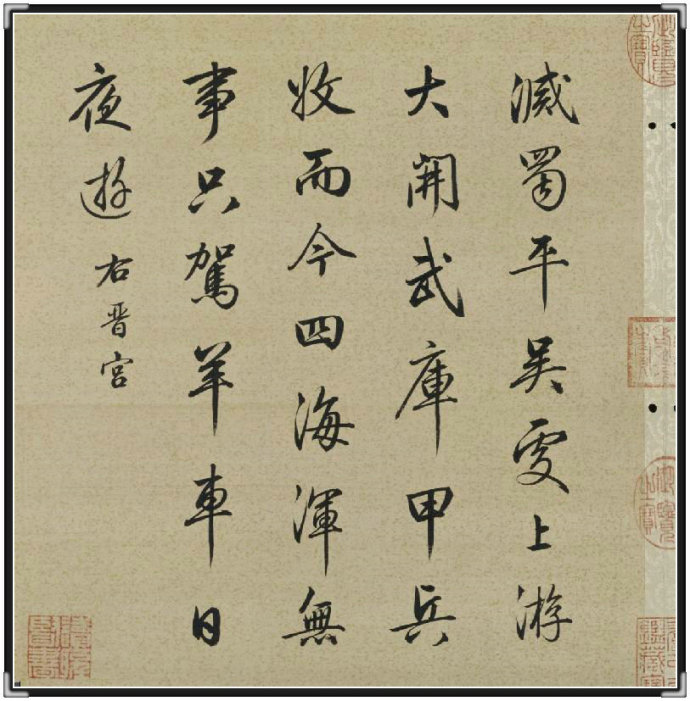 滅蜀平吳定上游
大開武庫甲兵
收而今四海渾無
事只駕羊車日
夜遊右晉宮